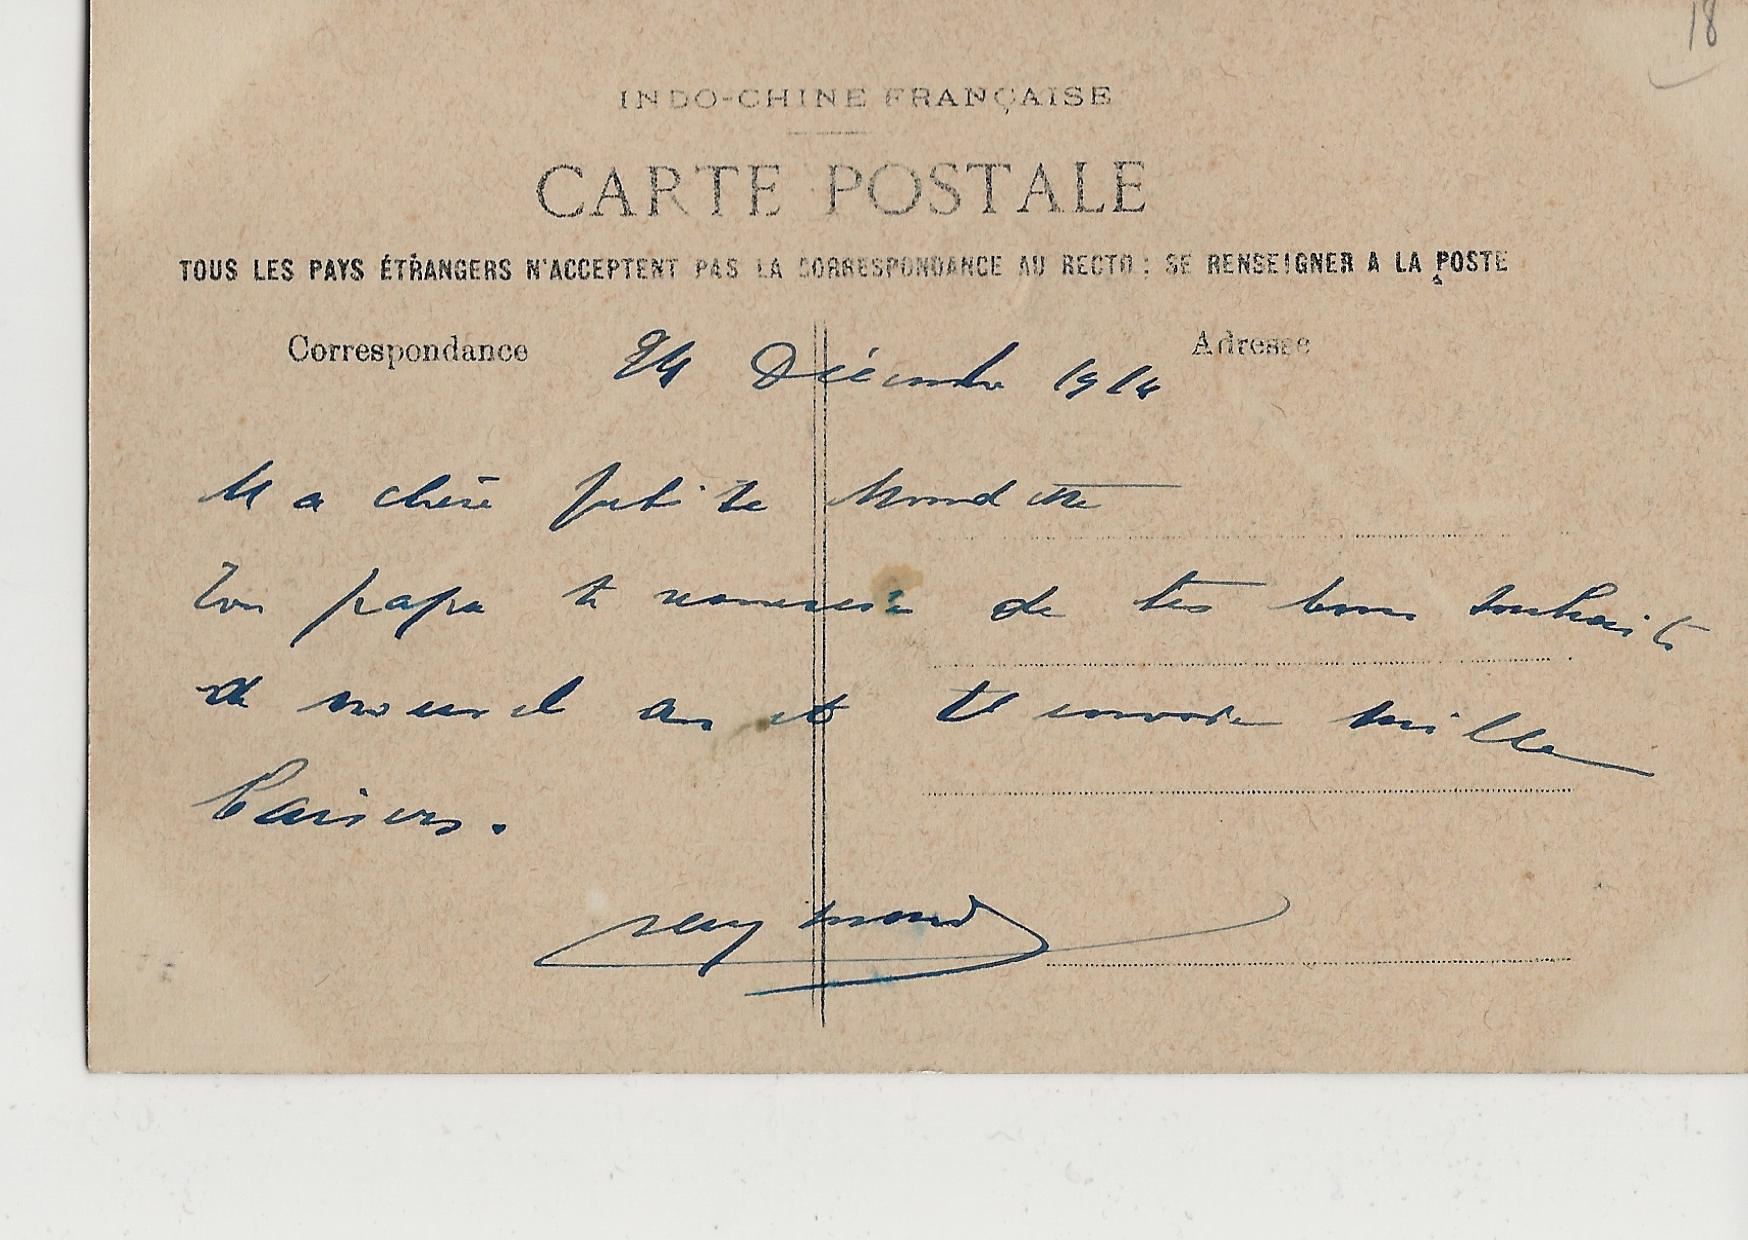 18
INDO-CHINE FRANÇAISE
CARTE POSTALE
TOUS LES PAYS ÉTRANGERS N'ACCEPTENT PAS LA CORRESPONDANCE AU RECTO : SE RENSEIGNER A LA POSTE
Correspondance
Adresse
24 Décembre 1914
Ma chère petite Mondette
Ton papa te remercie de tes bons souhaits
de nouvel an et t'envoie mille
baisers.
Raymond